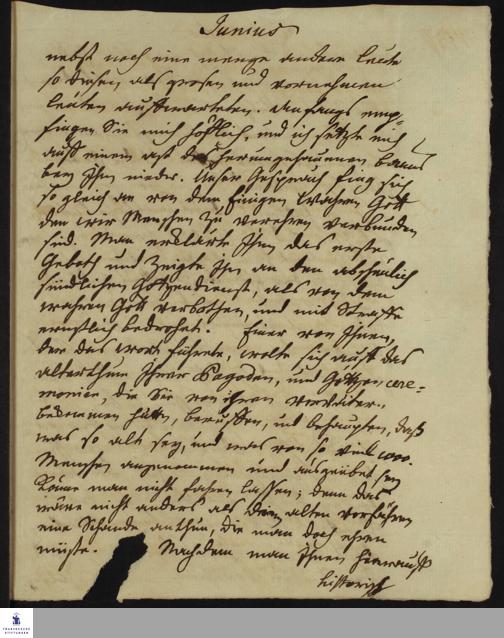 Junius
nebst noch eine menge andere leute
so diesen, als grosen und vornehmen
leuten auffwarteten. Anfangs emp-
fingen Sie mich höflich, und ich setzte mich
auff einem ast des herumgehauenen baums
bey Ihm nieder. Unser Gespräch fing sich
so gleich an von dem Einigen wahren Gott
den wir Menschen zu verehren verbunden
sind. Man erklärte Ihm das erste
Geboth und zeigte Ihm an den abscheulich
sündlichen Götzendienst, als von dem
wahren Gott verbothen, und mit Straffe
ernstlich bedrohet. Einer von Ihnen,
der das wort führete, wolte sich auff das
alterthum Ihrer Pagoden, und Götzen cere-
monien, die Sie von ihren vorvätern
bekommen hätten, beruffen, und behaupten, daß
was so alt sey, und was von so viel 1000.
Menschen angenommen und ausgeübet sey
könne man nicht fahren lassen; denn das
wäre nicht anders als den alten vorfahren
eine Schande anthun, die man doch ehren
müste. Nachdem man Ihnen hierauff
historisch
FRANCKESCHE
STIFTUNGEN